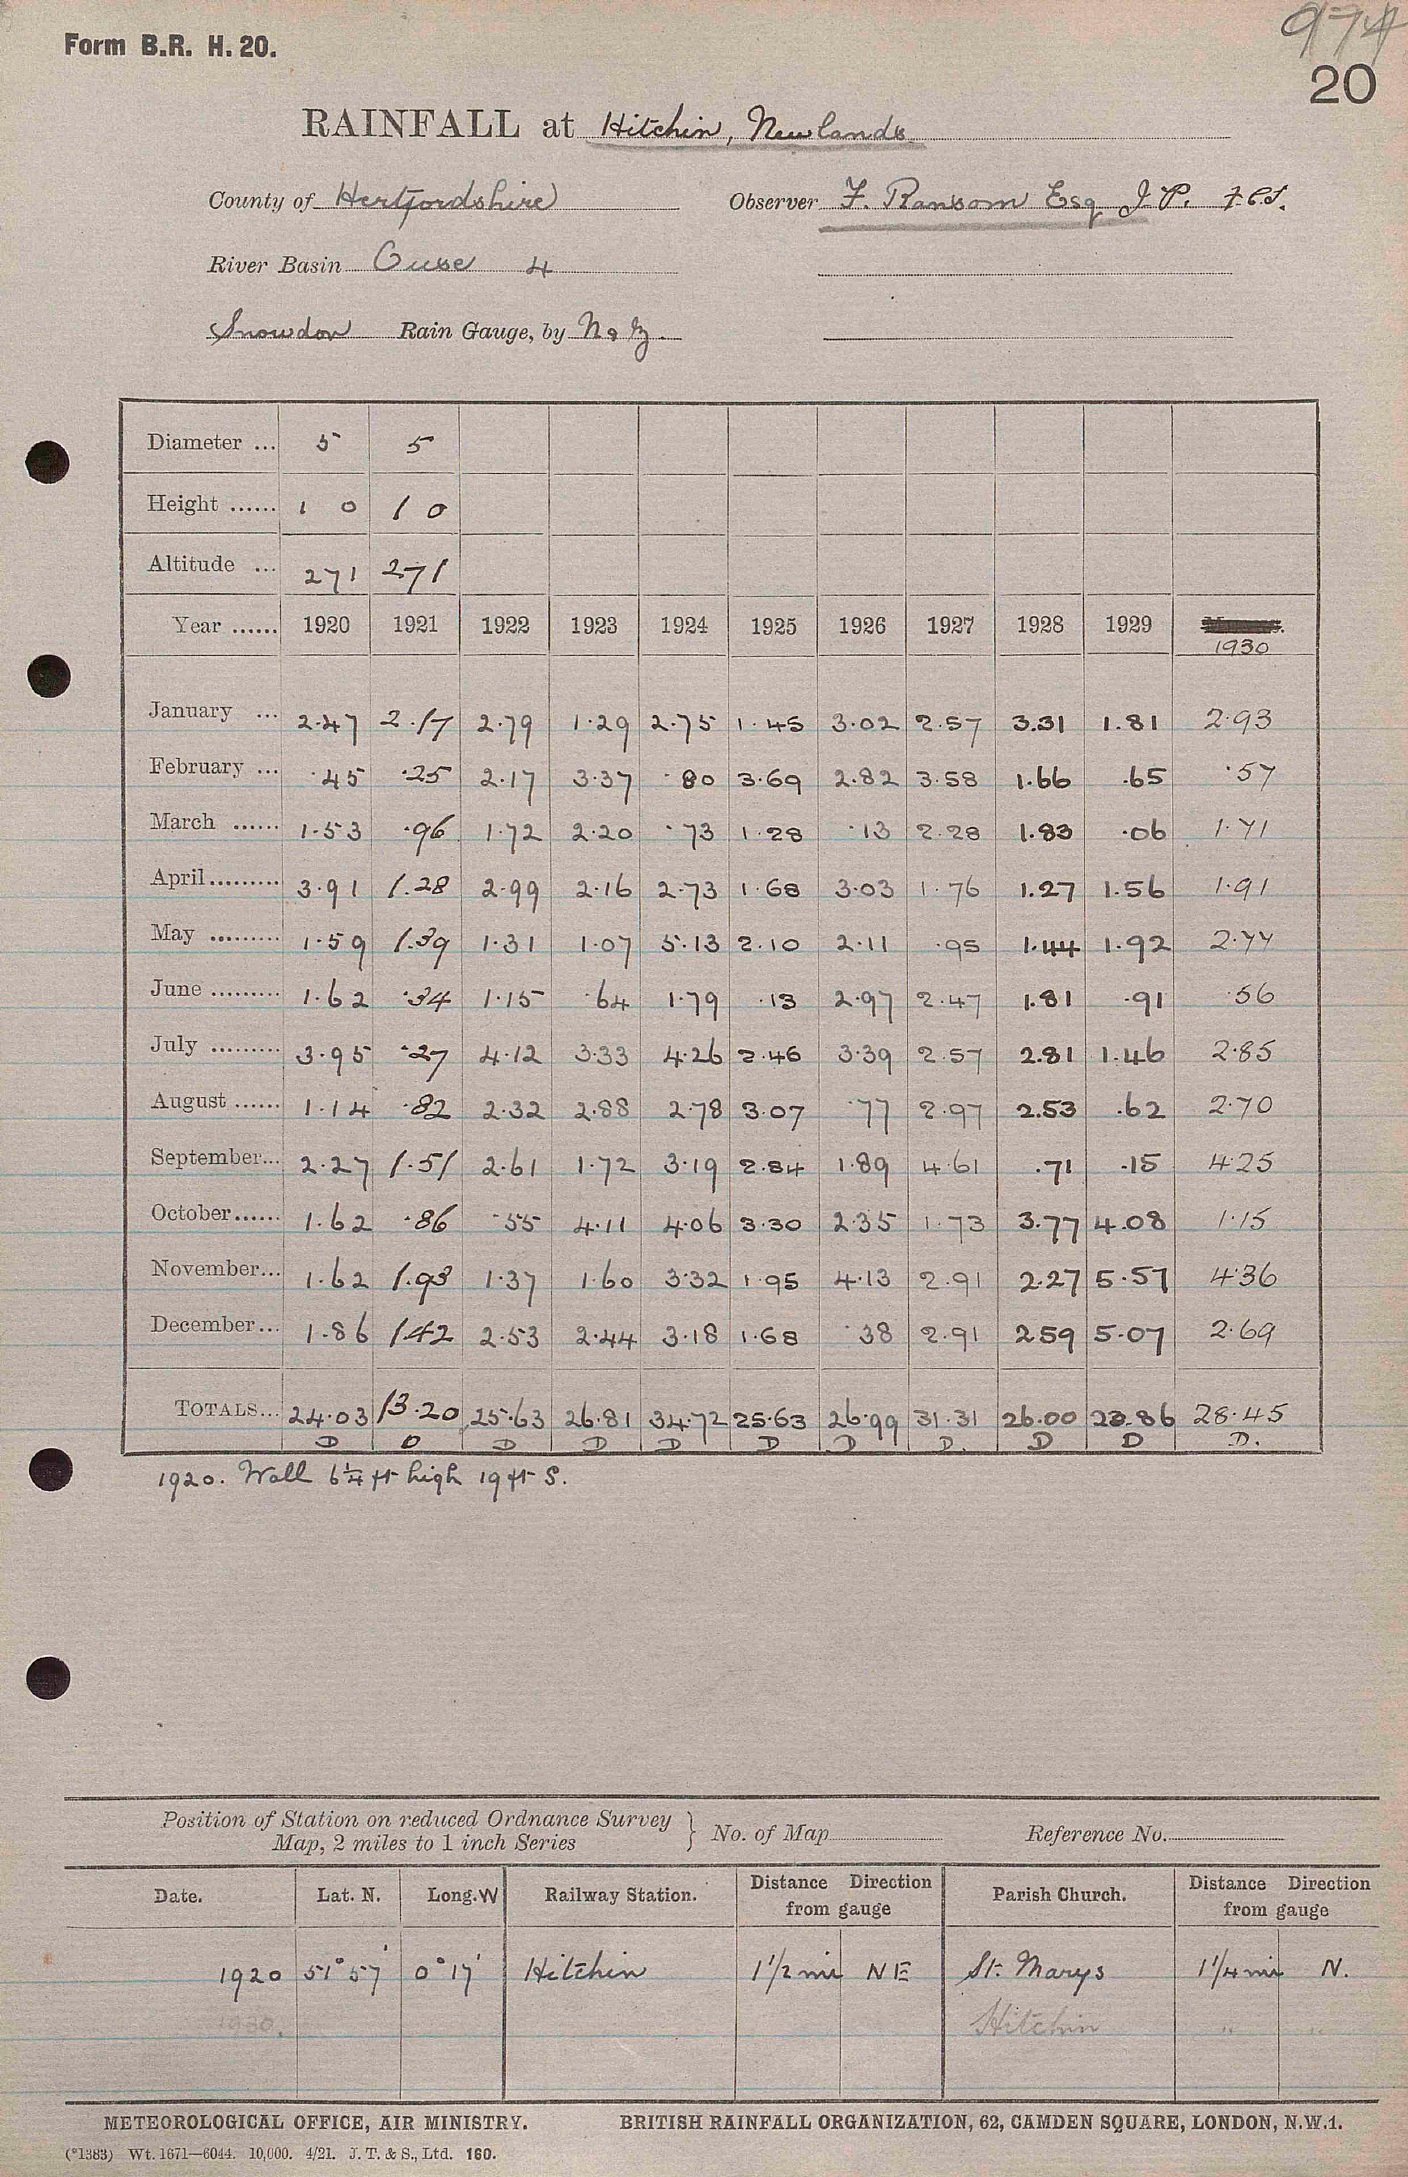 974
Form B.R. H. 20.
20
RAINFALL at Hitchin, Newlands
County of Hertfordshire Observer F. Ransom Esq J.P. F.C.S.
River Basin Ouse 4
Snowdon Rain Gauge, by N & Z.
Diameter ... 5 5
Height ...... 1 0 1 0
Altitude ... 271 271
Year ...... 1920 1921 1922 1923 1924 1925 1926 1927 1928 1929
1930
January ... 2.47 2.17 2.79 1.29 2.75 1.45 3.02 2.57 3.31 1.81 2.93
February ... .45 .25 2.17 3.37 .80 3.69 2.82 3.58 1.66 .65 .57
March ...... 1.53 .96 1.72 2.20 .73 1.28 .13 2.28 1.83 .06 1.71
April ......... 3.91 1.28 2.99 2.16 2.73 1.68 3.03 1.76 1.27 1.56 1.91
May ......... 1.59 1.39 1.31 1.07 5.13 2.10 2.11 .95 1.44 1.92 2.77
June ......... 1.62 .34 1.15 .64 1.79 .13 2.97 2.47 1.81 .91 .56
July ......... 3.95 .27 4.12 3.33 4.26 2.46 3.39 2.57 2.81 1.46 2.85
August ...... 1.14 .82 2.32 2.88 2.78 3.07 .77 2.97 2.53 .62 2.70
September... 2.27 1.51 2.61 1.72 3.19 2.84 1.89 4.61 .71 .15 4.25
October...... 1.62 .86 .55 4.11 4.06 3.30 2.35 1.73 3.77 4.08 1.15
November... 1.62 1.93 1.37 1.60 3.32 1.95 4.13 2.91 2.27 5.57 4.36
December... 1.86 1.42 2.53 2.44 3.18 1.68 .38 2.91 2.59 5.07 2.69
TOTALS... 24.03 13.20 25.63 26.81 34.72 25.63 26.99 31.31 26.00 23.86 28.45
D D D D D D D D. D D D.
1920. Wall 6¼ ft high 19 ft S.
Position of Station on reduced Ordnance Survey
Map, 2 miles to 1 inch Series } No. of Map Reference No.
Date. Lat. N. Long. W Railway Station. Distance Direction from gauge Parish Church. Distance Direction from gauge
1920 51° 57' 0° 17' Hitchin 1 1/2 mi NE St. Marys 1 1/4 mi N.
1930. Hitchin " "
METEOROLOGICAL OFFICE, AIR MINISTRY. BRITISH RAINFALL ORGANIZATION, 62, CAMDEN SQUARE, LONDON, N.W.1.
(*1383) Wt. 1671—6044. 10,000. 4/21. J. T. & S., Ltd. 160.